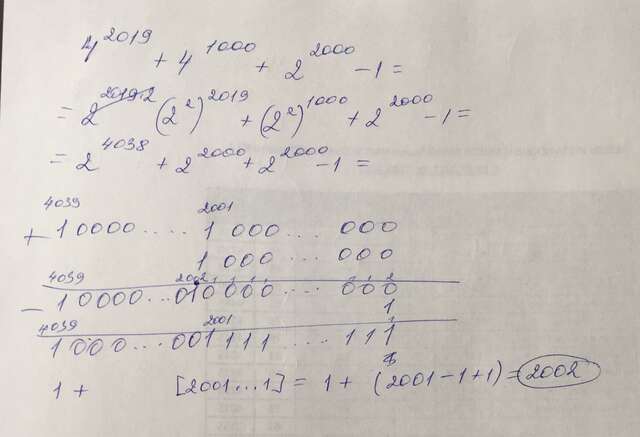 4^2019 + 4^1000 + 2^2000 - 1 =
= (2^2)^2019 + (2^2)^1000 + 2^2000 - 1 =
= 2^4038 + 2^2000 + 2^2000 - 1 =
4039 2001
+ 10000.... 1 000... 000
1 000... 000
4039 2002
- 10000...010000... 000
1
4039 2001
1000...001111....111
1 + [2001...1] = 1 + (2001-1+1) = 2002